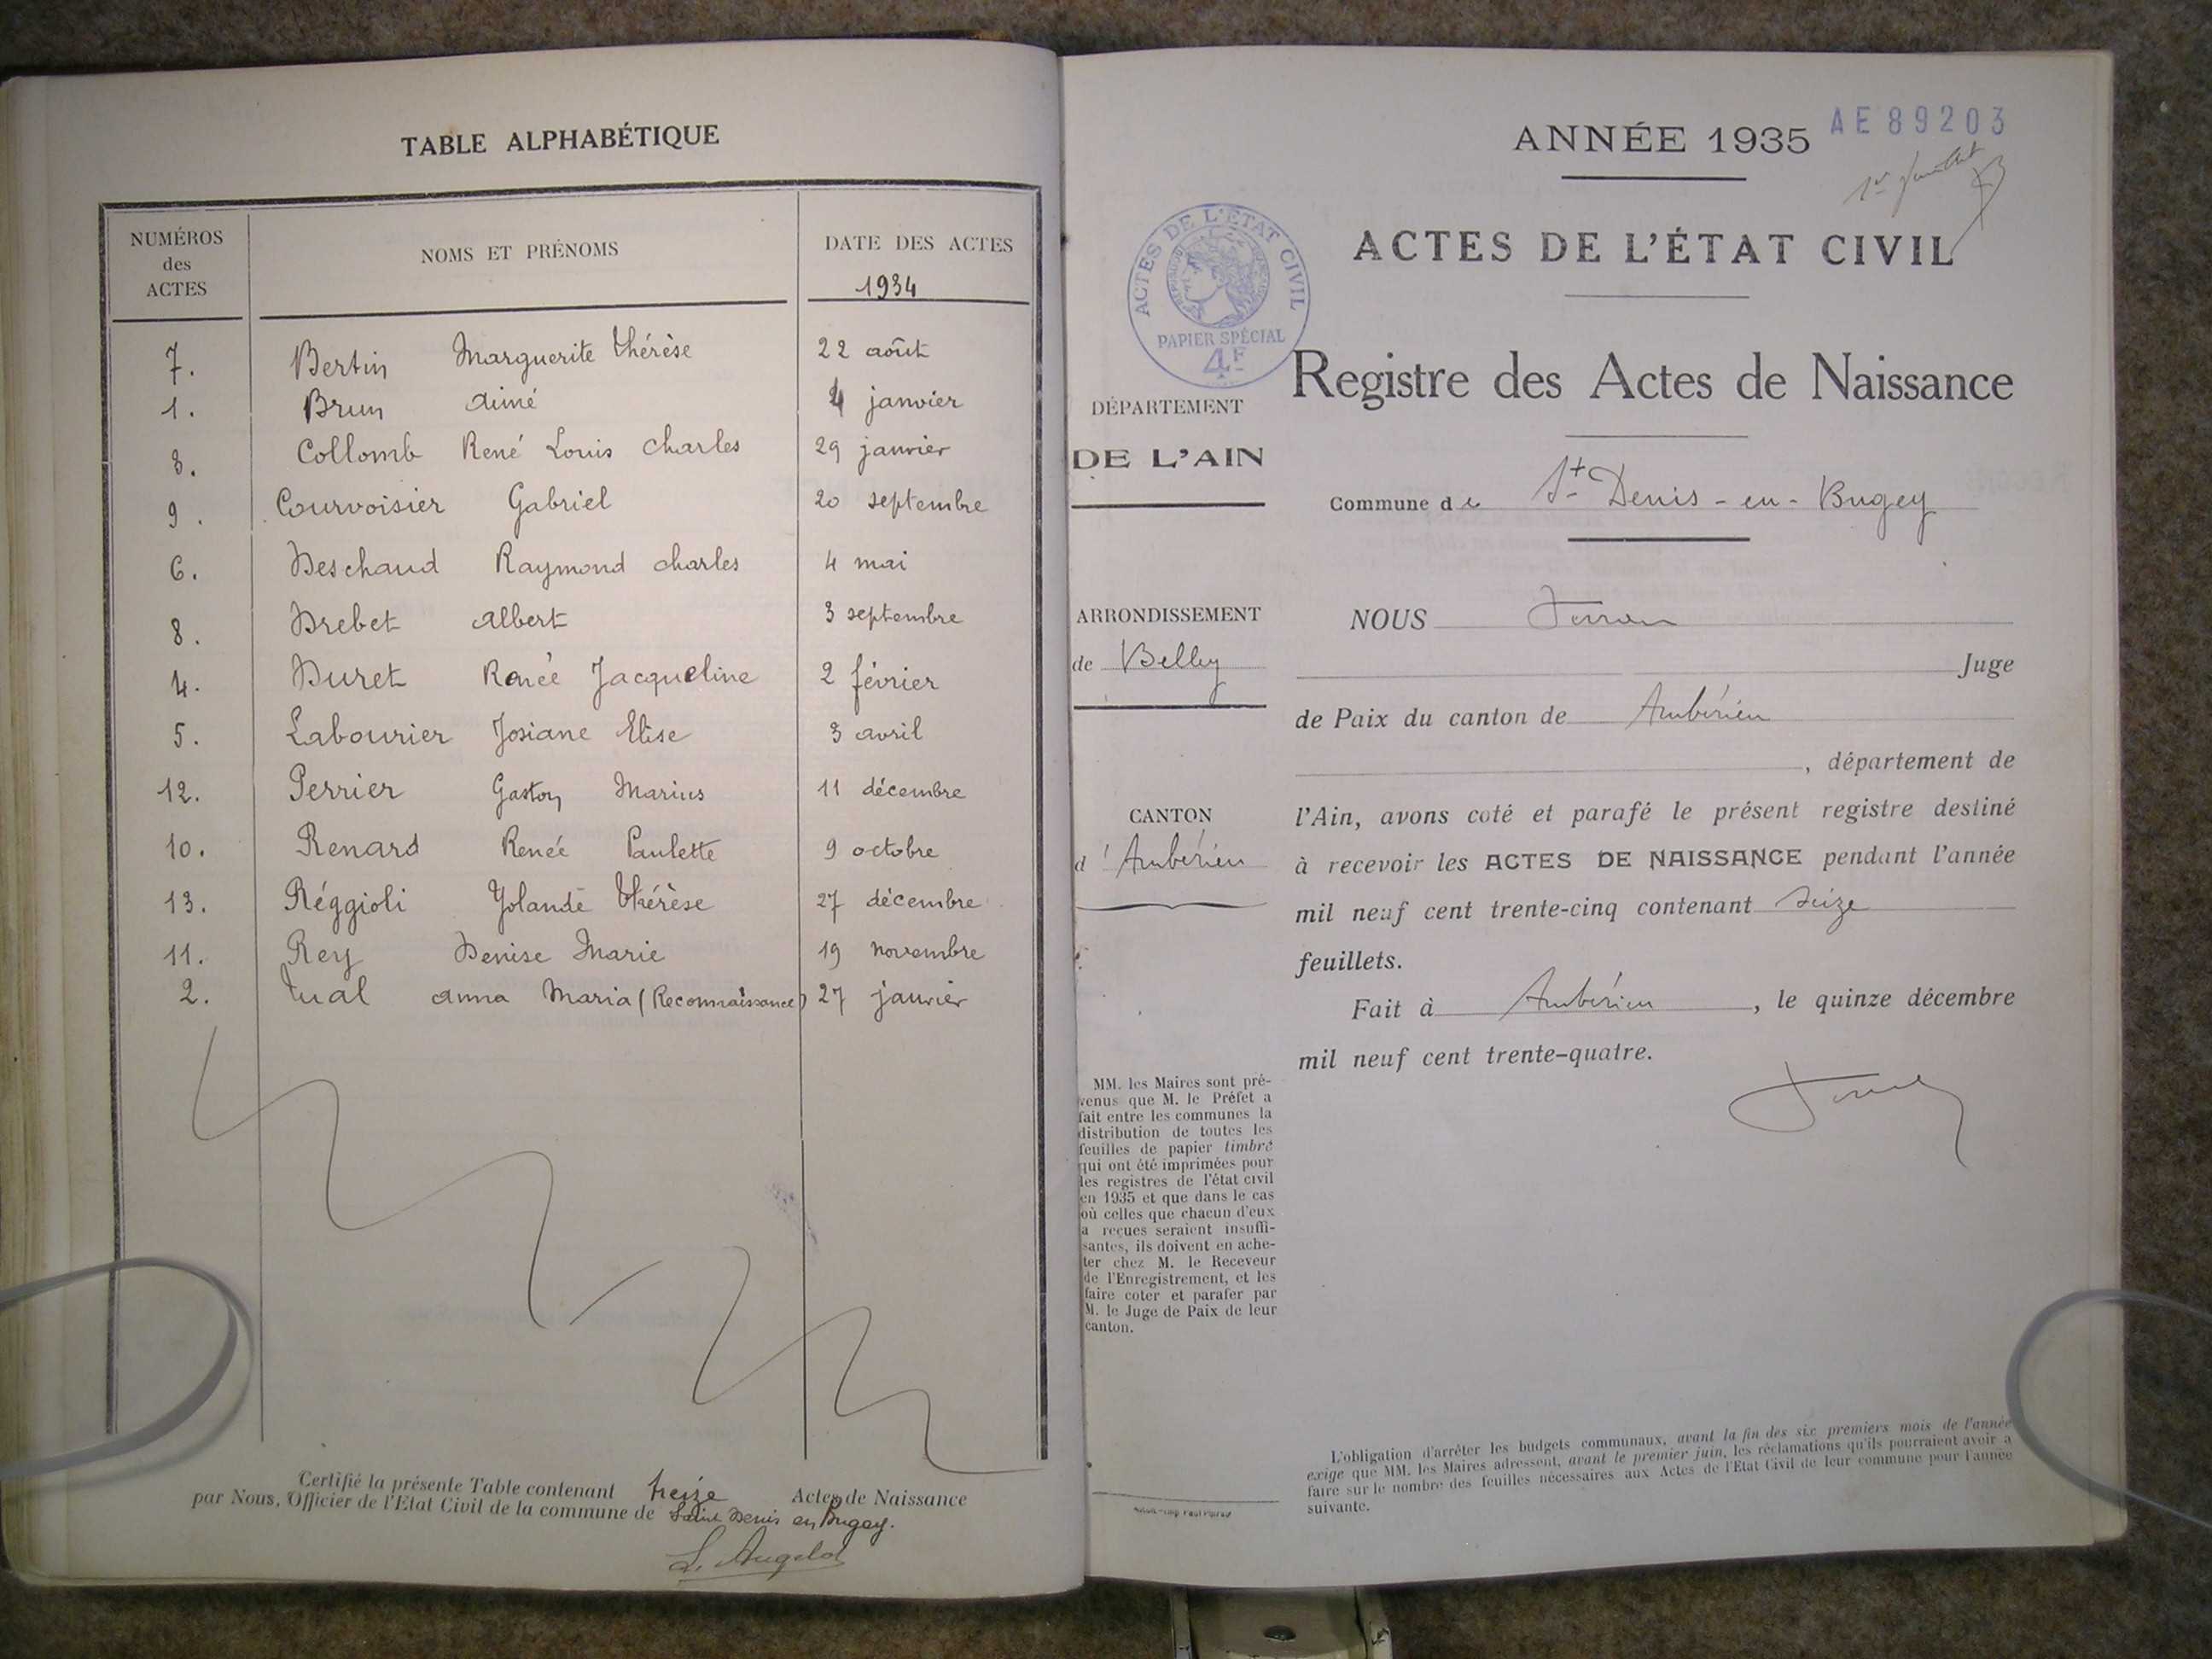 TABLE ALPHABÉTIQUE
NUMÉROS
des
ACTES
NOMS ET PRÉNOMS
DATE DES ACTES
1934
7. Bertin Marguerite Thérèse 22 août
1. Brun Aimé 4 janvier
3. Collomb René Louis Charles 29 janvier
9. Courvoisier Gabriel 20 septembre
6. Deschaud Raymond Charles 4 mai
8. Drebet Albert 3 septembre
4. Duret Renée Jacqueline 2 février
5. Labourier Josiane Elise 3 avril
12. Perrier Gaston Marius 11 décembre
10. Renard Renée Paulette 9 octobre
13. Réggioli Yolande Thérèse 27 décembre
11. Rey Denise Marie 19 novembre
2. Tual Anna Maria (Reconnaissance) 27 janvier
Certifié la présente Table contenant treize Actes de Naissance
par Nous, Officier de l'Etat Civil de la commune de Saint Denis en Bugey.
ANNÉE 1935
AE 89203
1er Juillet
ACTES DE L'ÉTAT CIVIL
ACTES DE L'ETAT CIVIL
PAPIER SPÉCIAL
4F
Registre des Actes de Naissance
DÉPARTEMENT
DE L'AIN
Commune de St Denis-en-Bugey
ARRONDISSEMENT
de Belley
CANTON
d'Ambérieu
MM. les Maires sont pré-
venus que M. le Préfet a
fait entre les communes la
distribution de toutes les
feuilles de papier timbré
qui ont été imprimées pour
les registres de l'état civil
en 1935 et que dans le cas
où celles que chacun d'eux
a reçues seraient insuffi-
santes, ils doivent en ache-
ter chez M. le Receveur
de l'Enregistrement, et les
faire coter et parafer par
M. le Juge de Paix de leur
canton.
NOUS
Juge
de Paix du canton de Ambérieu
, département de
l'Ain, avons coté et parafé le présent registre destiné
à recevoir les ACTES DE NAISSANCE pendant l'année
mil neuf cent trente-cinq contenant seize
feuillets.
Fait à Ambérieu, le quinze décembre
mil neuf cent trente-quatre.
L'obligation d'arrêter les budgets communaux, avant la fin des six premiers mois de l'année
exige que MM. les Maires adressent, avant le premier juin, les réclamations qu'ils pourraient avoir à
faire sur le nombre des feuilles nécessaires aux Actes de l'Etat Civil de leur commune pour l'année
suivante.